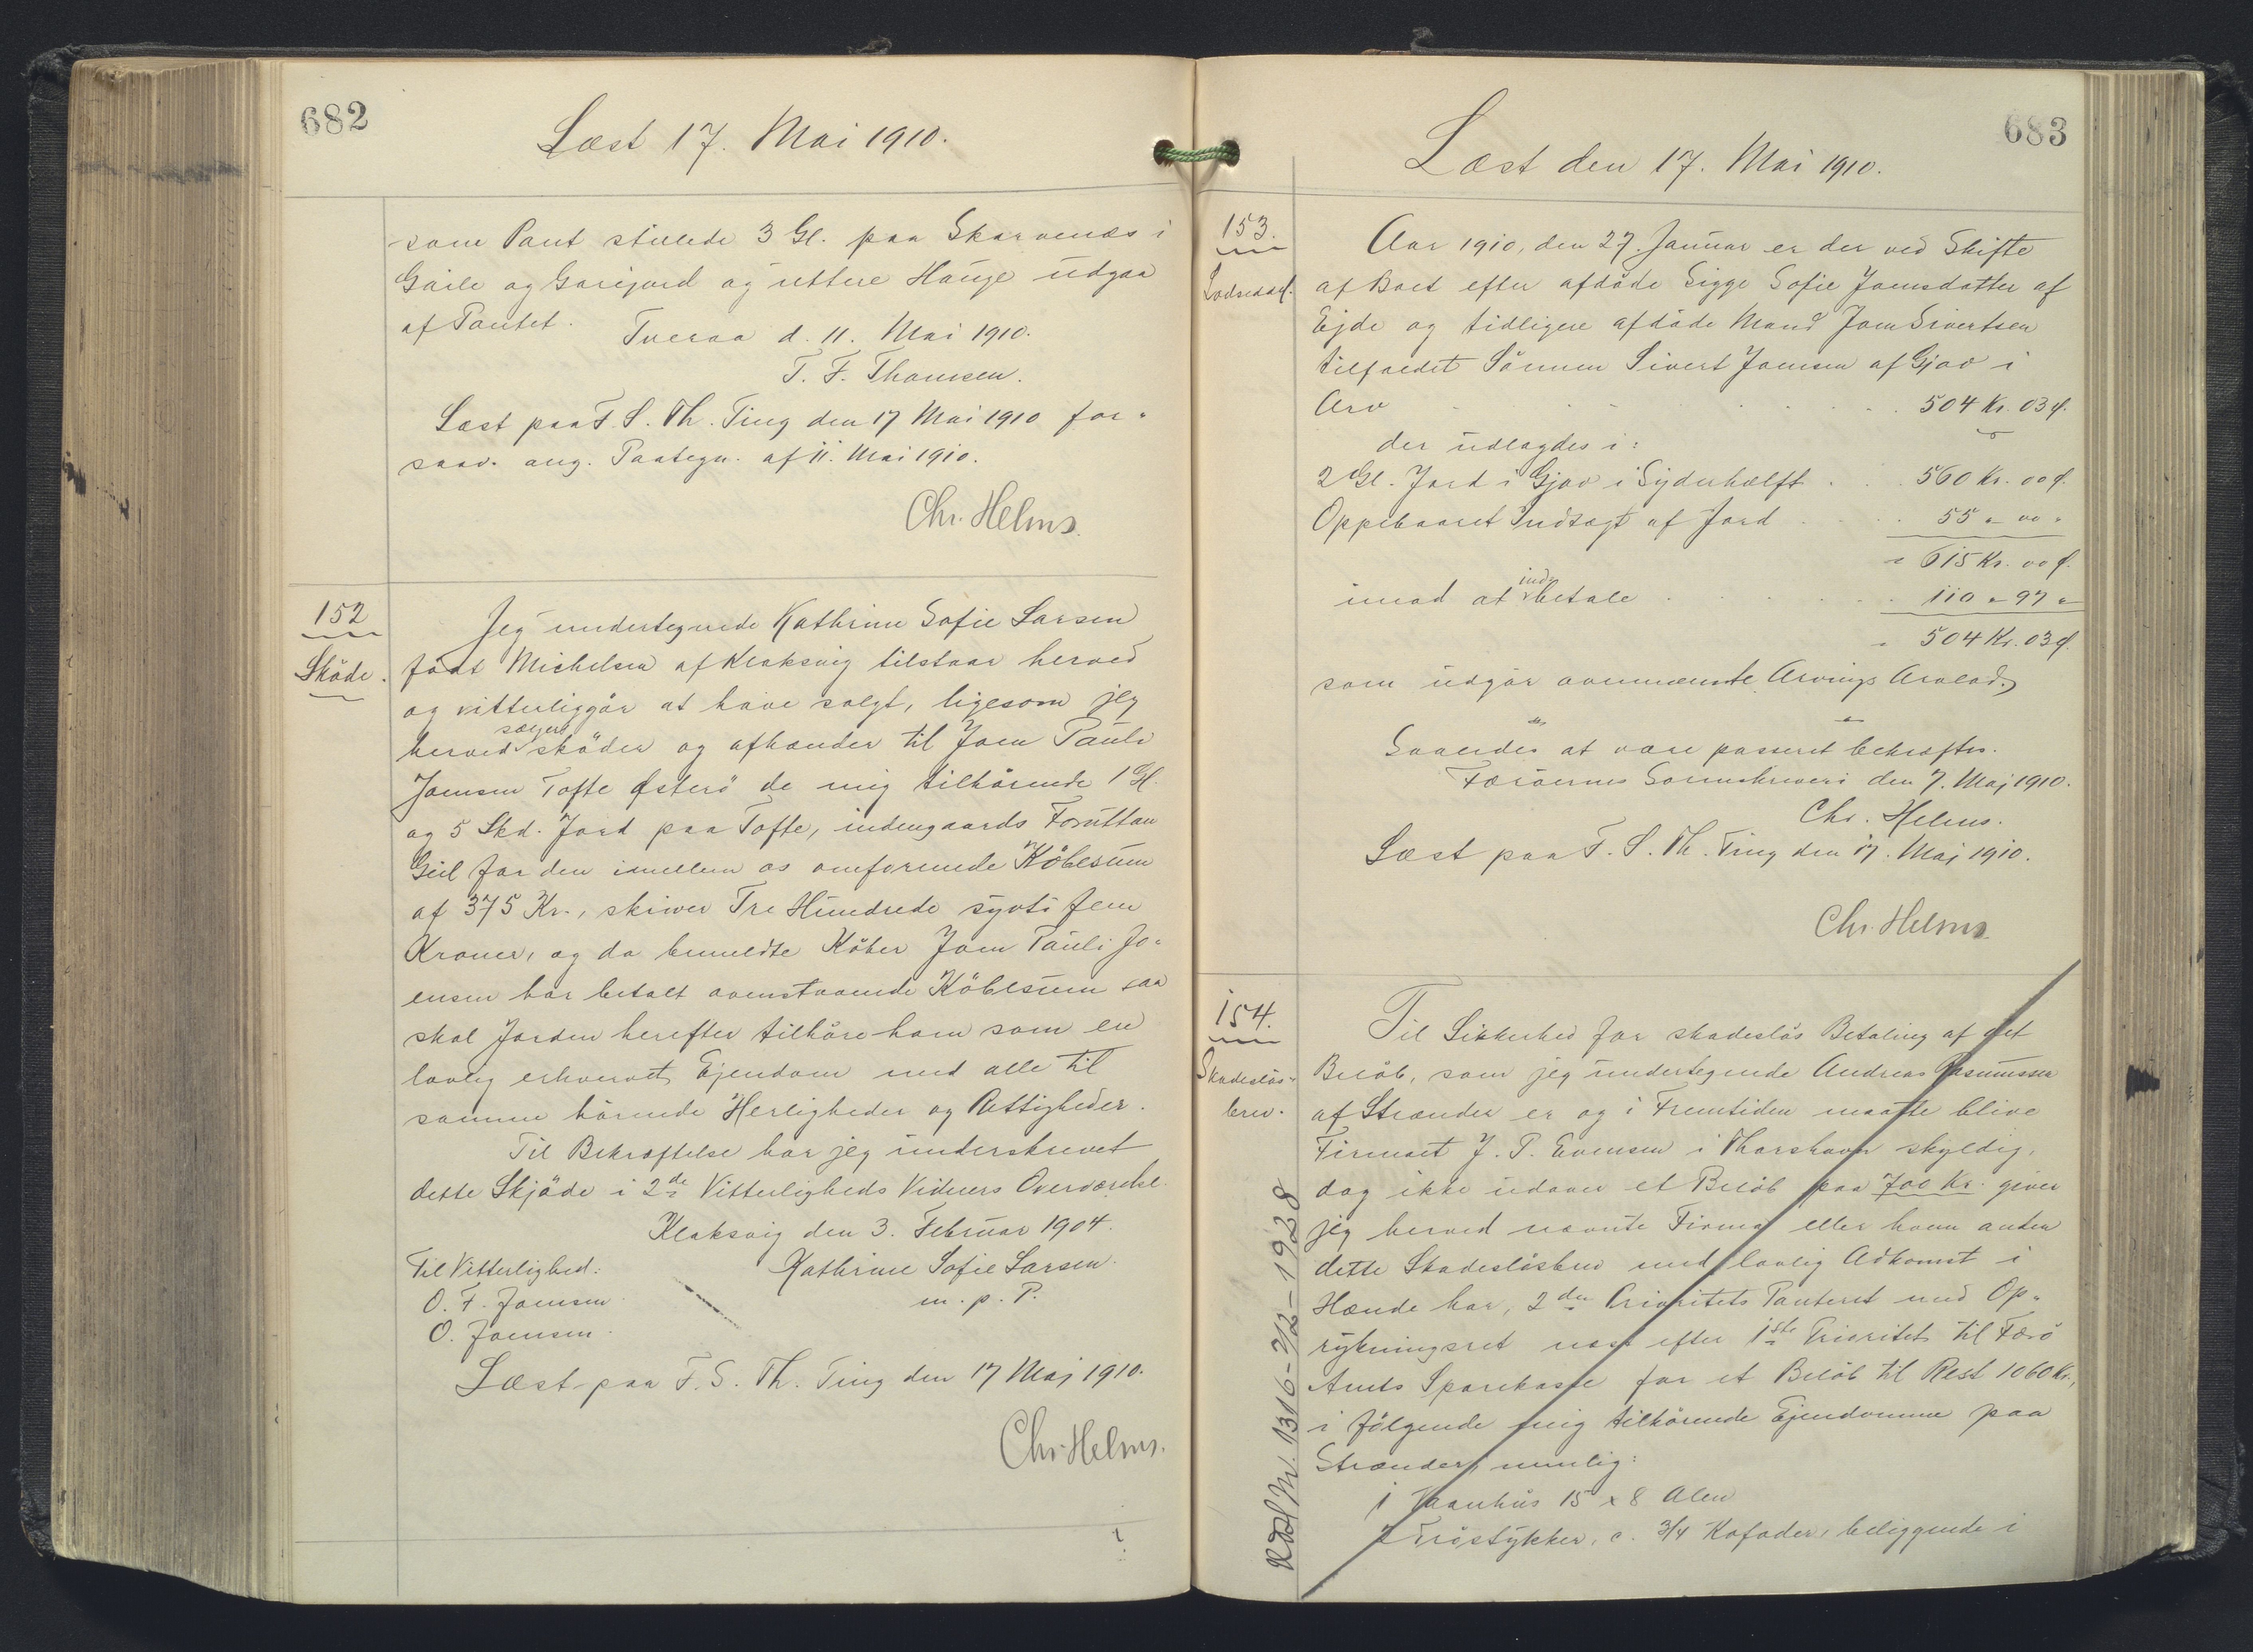 682
Læst 17. Mai 1910.
som Pant stillede 3 Gl. paa Skarvenæs i
Gaile og Garejord og uttere Hauge udgaa
af Pantet.
Tveraa d. 11. Mai 1910.
T. F. Thomsen.
Læst paa F. S. Th. Ting den 17 Mai 1910 for-
saav. ang. Paategn. af 11. Mai 1910.
Chr. Helms.
152
Sköde.
Jeg undertegnede Kathrine Sofie Larsen
födt Michelsen af Klaksvig tilstaar herved
og vitterliggör at have solgt, ligesom jeg
herved sælger sköder og afhænder til Joen Pauli
Joensen Tofte Østerö de mig tilhörende 1 Gl.
og 5 Skd. Jord paa Tofte, indengaards Foruttan
Geil for den imellem os omforenede Köbesum
af 375 Kr., skriver Tre Hundrede syvti fem
Kroner, og da bemeldte Köber Joen Pauli Jo-
ensen har betalt ovenstaaende Köbesum saa
skal Jorden herefter tilhöre ham som en
lovlig erhvervet Ejendom med alle til
samme hörende Herligheder og Rettigheder.
Til Bekræftelse har jeg underskrevet
dette Skjöde i 2de Vitterligheds Vidners Overværelse.
Klaksvig den 3. Februar 1904.
Til Vitterlighed:
Kathrine Sofie Larsen.
O. F. Joensen
m. p. P.
O. Joensen.
Læst paa F. S. Th. Ting den 17 Maj 1910.
Chr. Helms.
683
Læst den 17. Mai 1910.
153.
Lodseddel.
Aar 1910, den 27. Januar er der ved Skifte
af Boet efter afdöde Sigge Sofie Joensdatter af
Ejde og tidligere afdöde Mand Joen Sivertsen
tilfaldet Sönnen Sivert Joensen af Gjov i
Arv . . . . . . 504 Kr. 03 ø.
der udlagdes i:
2 Gl. Jord i Gjov i Syderhælft . . . 560 Kr. 00 ø.
Oppebaaret Indtægt af Jord . . . . 55 " 00 "
= 615 Kr. 00 ø.
imod at indbetale . . . . . . 110 " 97 "
= 504 Kr. 03 ø.
som udgör ovennævnte Arvings Arvelod.
Saaledes at være passeret bekræftes.
Færöernes Sorenskriveri den 7. Maj 1910.
Chr. Helms.
Læst paa F. S. Th. Ting den 17. Maj 1910.
Chr. Helms
154.
Skadeslös-
brev.
Til Sikkerhed for skadeslös Betaling af det
Belöb, som jeg undertegnede Andreas Rasmussen
af Strænder er og i Fremtiden maatte blive
Firmaet J. P. Evensen i Thorshavn skyldig,
dog ikke udover et Belöb paa 700 Kr. giver
jeg herved nævnte Firma eller hvem anden
dette Skadeslösbrev med lovlig Adkomst i
Hænde har, 2den Prioritets Panteret med Op-
rykningsret næst efter 1ste Prioritet til Færö
Amts Sparekasse for et Belöb til Rest 1060 Kr.,
i fölgende mig tilhörende Ejendomme paa
Strænder, nemlig:
1 Vaanhus 15 x 8 Alen
2 Tröstykker, c. 3/4 Kofoder, beliggende i
Udsl. Nr. 1316-2/2-1928